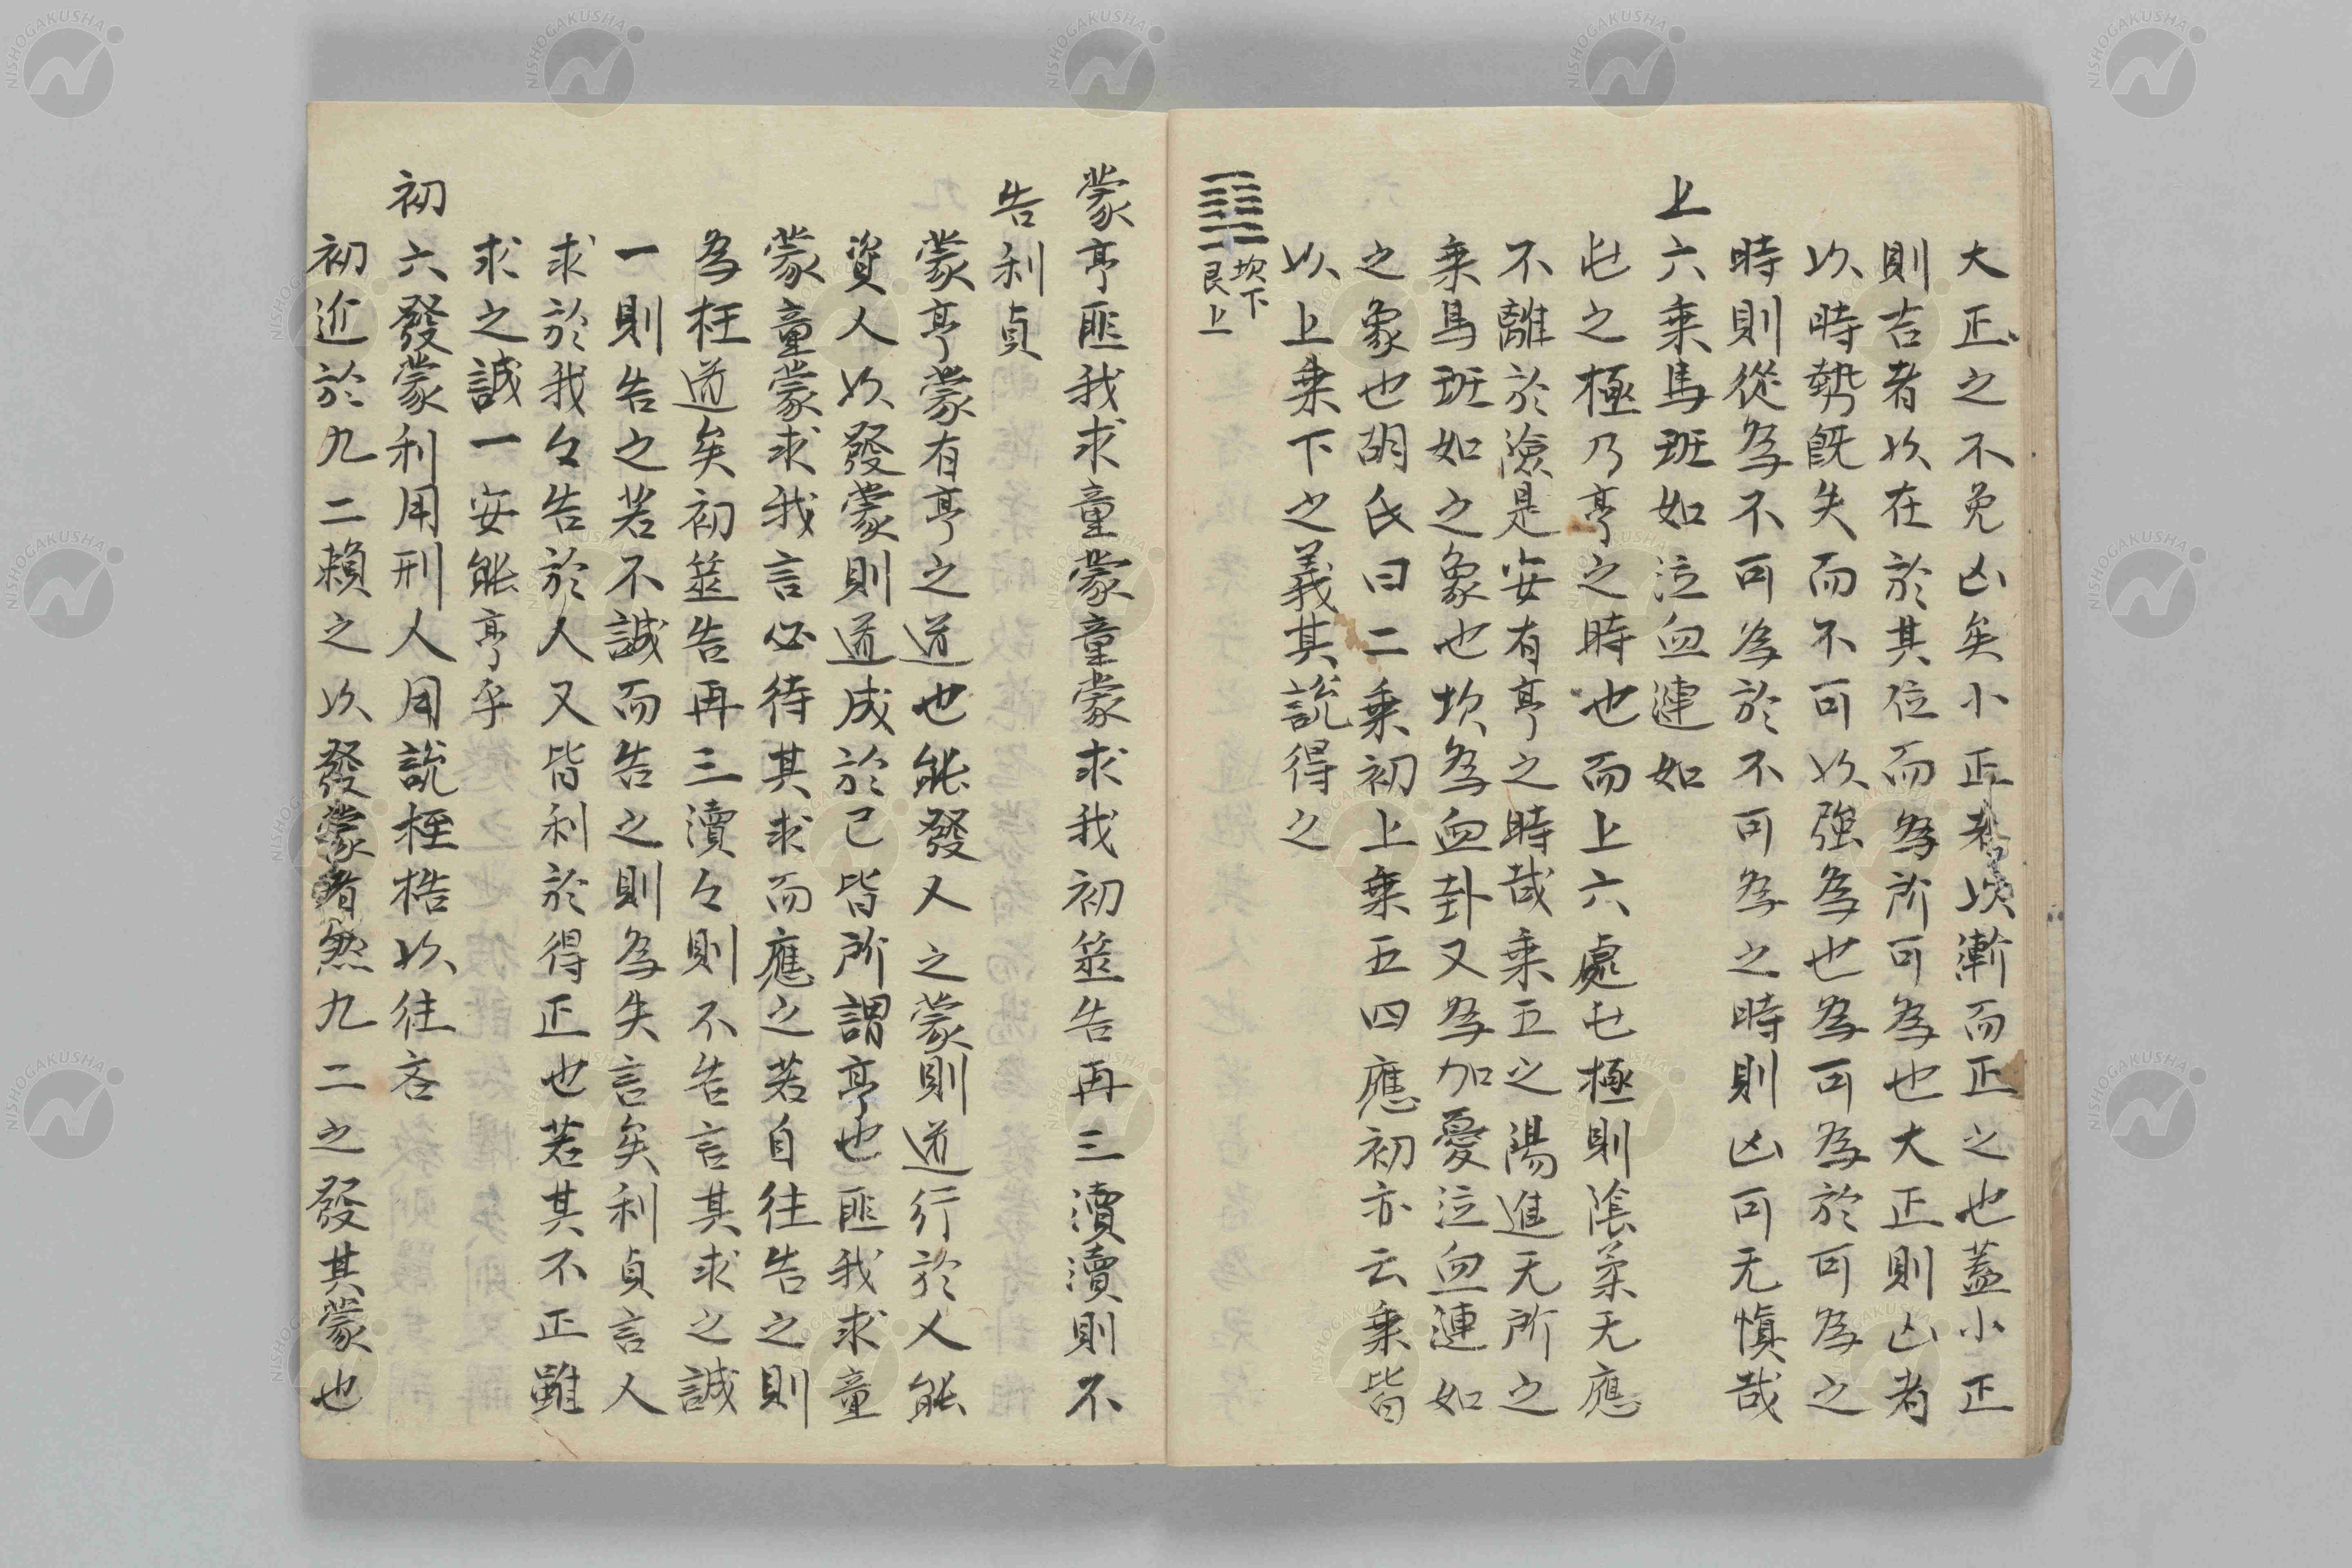 大正之不免凶矣小正者以漸而正之也蓋小正
則吉者以在於其位而為所可為也大正則凶者
以時勢既失而不可以強為也為可為於可為之
時則從為不可為於不可為之時則凶可无慎哉
上六乘馬班如泣血漣如
屯之極乃亨之時也而上六處屯極則陰柔无應
不離於險是安有亨之時哉乘五之陽進无所之
乘馬班如之象也坎為血卦又為加憂泣血漣如
之象也胡氏曰二乘初上乘五四應初亦云乘皆
以上乘下之義其說得之
䷃坎下
艮上
蒙亨匪我求童蒙童蒙求我初筮告再三瀆瀆則不
告利貞
蒙亨蒙有亨之道也能發人之蒙則道行於人能
資人以發蒙則道成於己皆所謂亨也匪我求童
蒙童蒙求我言必待其求而應之若自往告之則
為枉道矣初筮告再三瀆々則不告言其求之誠
一則告之若不誠而告之則為失言矣利貞言人
求於我々告於人又皆利於得正也若其不正雖
求之誠一安能亨乎
初六發蒙利用刑人用說桎梏以往吝
初近於九二賴之以發蒙者然九二之發其蒙也
NISHOGAKUSHA